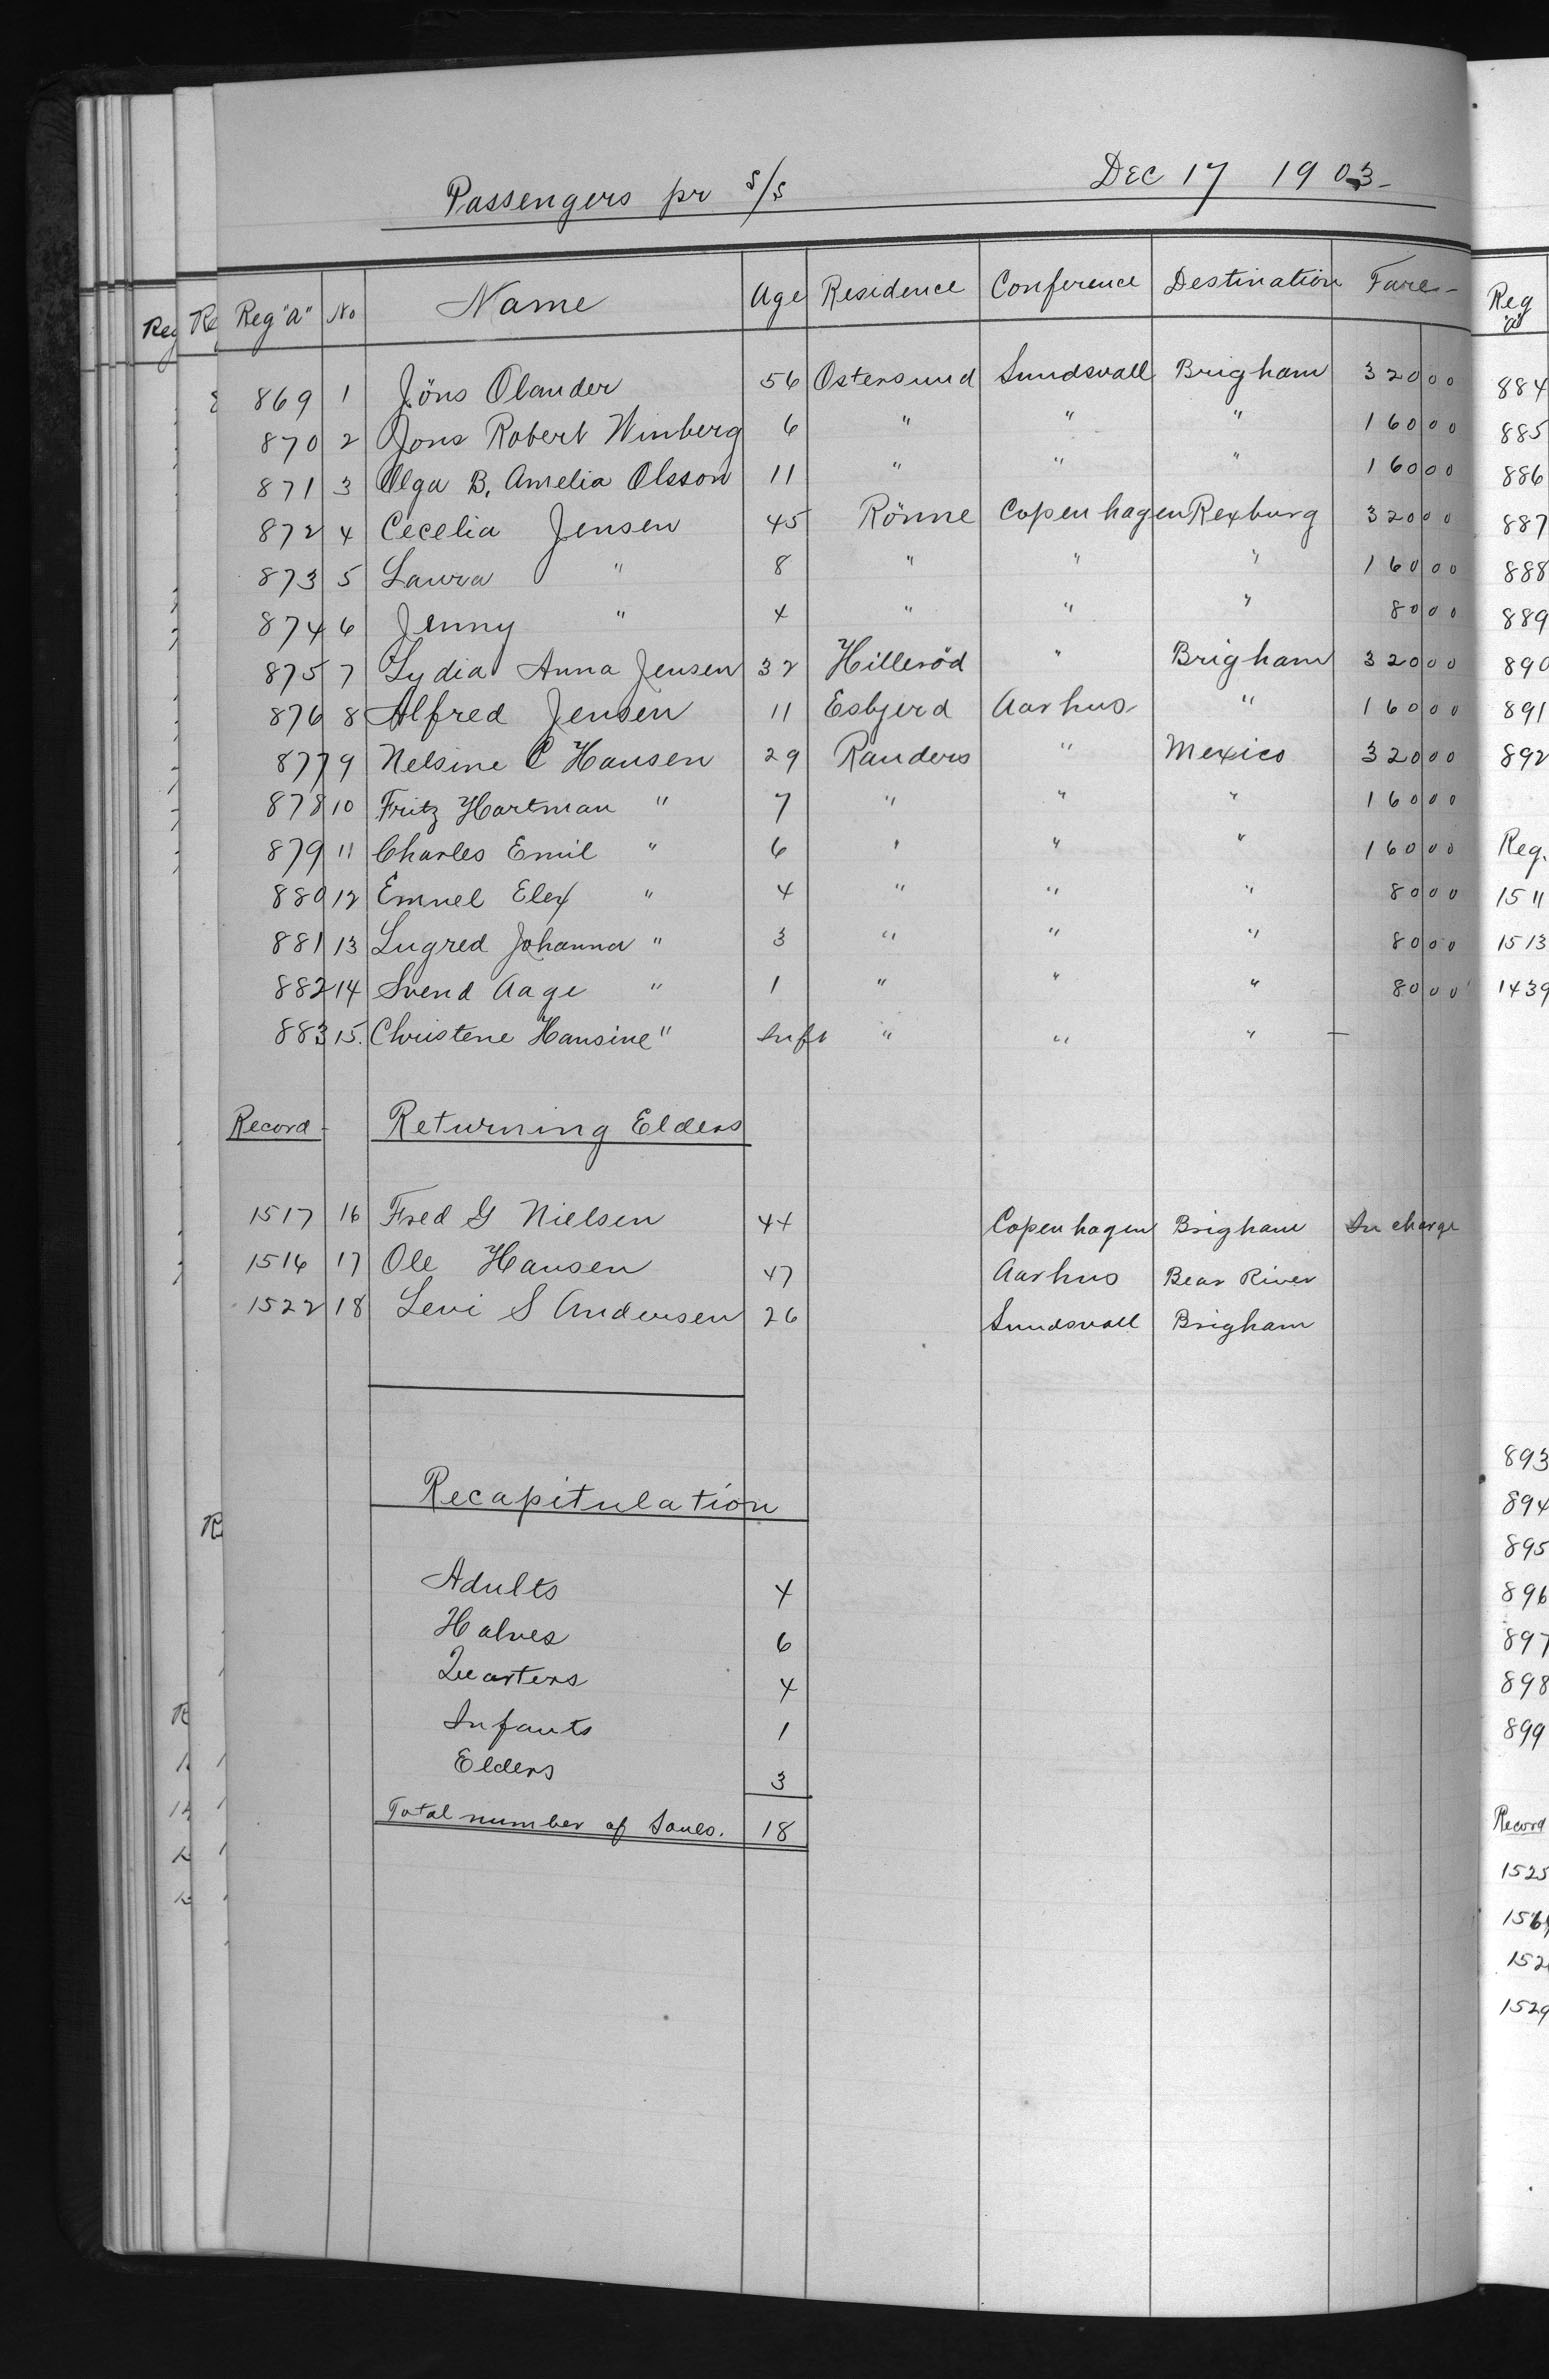 Passengers pr S/S DEC 17 1903
Reg "A" No Name Age Residence Conference Destination Fare
869 1 Jöns Olander 56 Ostersund Sundsvall Brigham 320 00
870 2 Jons Robert Winberg 6 " " " 160 00
871 3 Olga B. Amelia Olsson 11 " " " 160 00
872 4 Cecelia Jensen 45 Rönne Copenhagen Rexburg 320 00
873 5 Laura " 8 " " " 160 00
874 6 Jenny " 4 " " " 80 00
875 7 Lydia Anna Jensen 32 Hilleröd " Brigham 320 00
876 8 Alfred Jensen 11 Esbjerd Aarhus " 160 00
877 9 Nelsine C Hansen 29 Randers " Mexico 320 00
878 10 Fritz Hartman " 7 " " " 160 00
879 11 Charles Emil " 6 " " " 160 00
880 12 Emuel Elex " 4 " " " 80 00
881 13 Lugred Johanna " 3 " " " 80 00
882 14 Svend Aage " 1 " " " 80 00
883 15. Christene Hansine " Inft " " " —
Record Returning Elders
1517 16 Fred G Nielsen 44 Copenhagen Brigham In charge
1516 17 Ole Hansen 47 Aarhus Bear River
1522 18 Levi S Andersen 26 Sundsvall Brigham
Recapitulation
Adults 4
Halves 6
Quarters 4
Infants 1
Elders 3
Total number of Souls. 18
Reg
"a"
884
885
886
887
888
889
890
891
892
Reg.
1511
1513
1439
893
894
895
896
897
898
899
Record
1525
1529